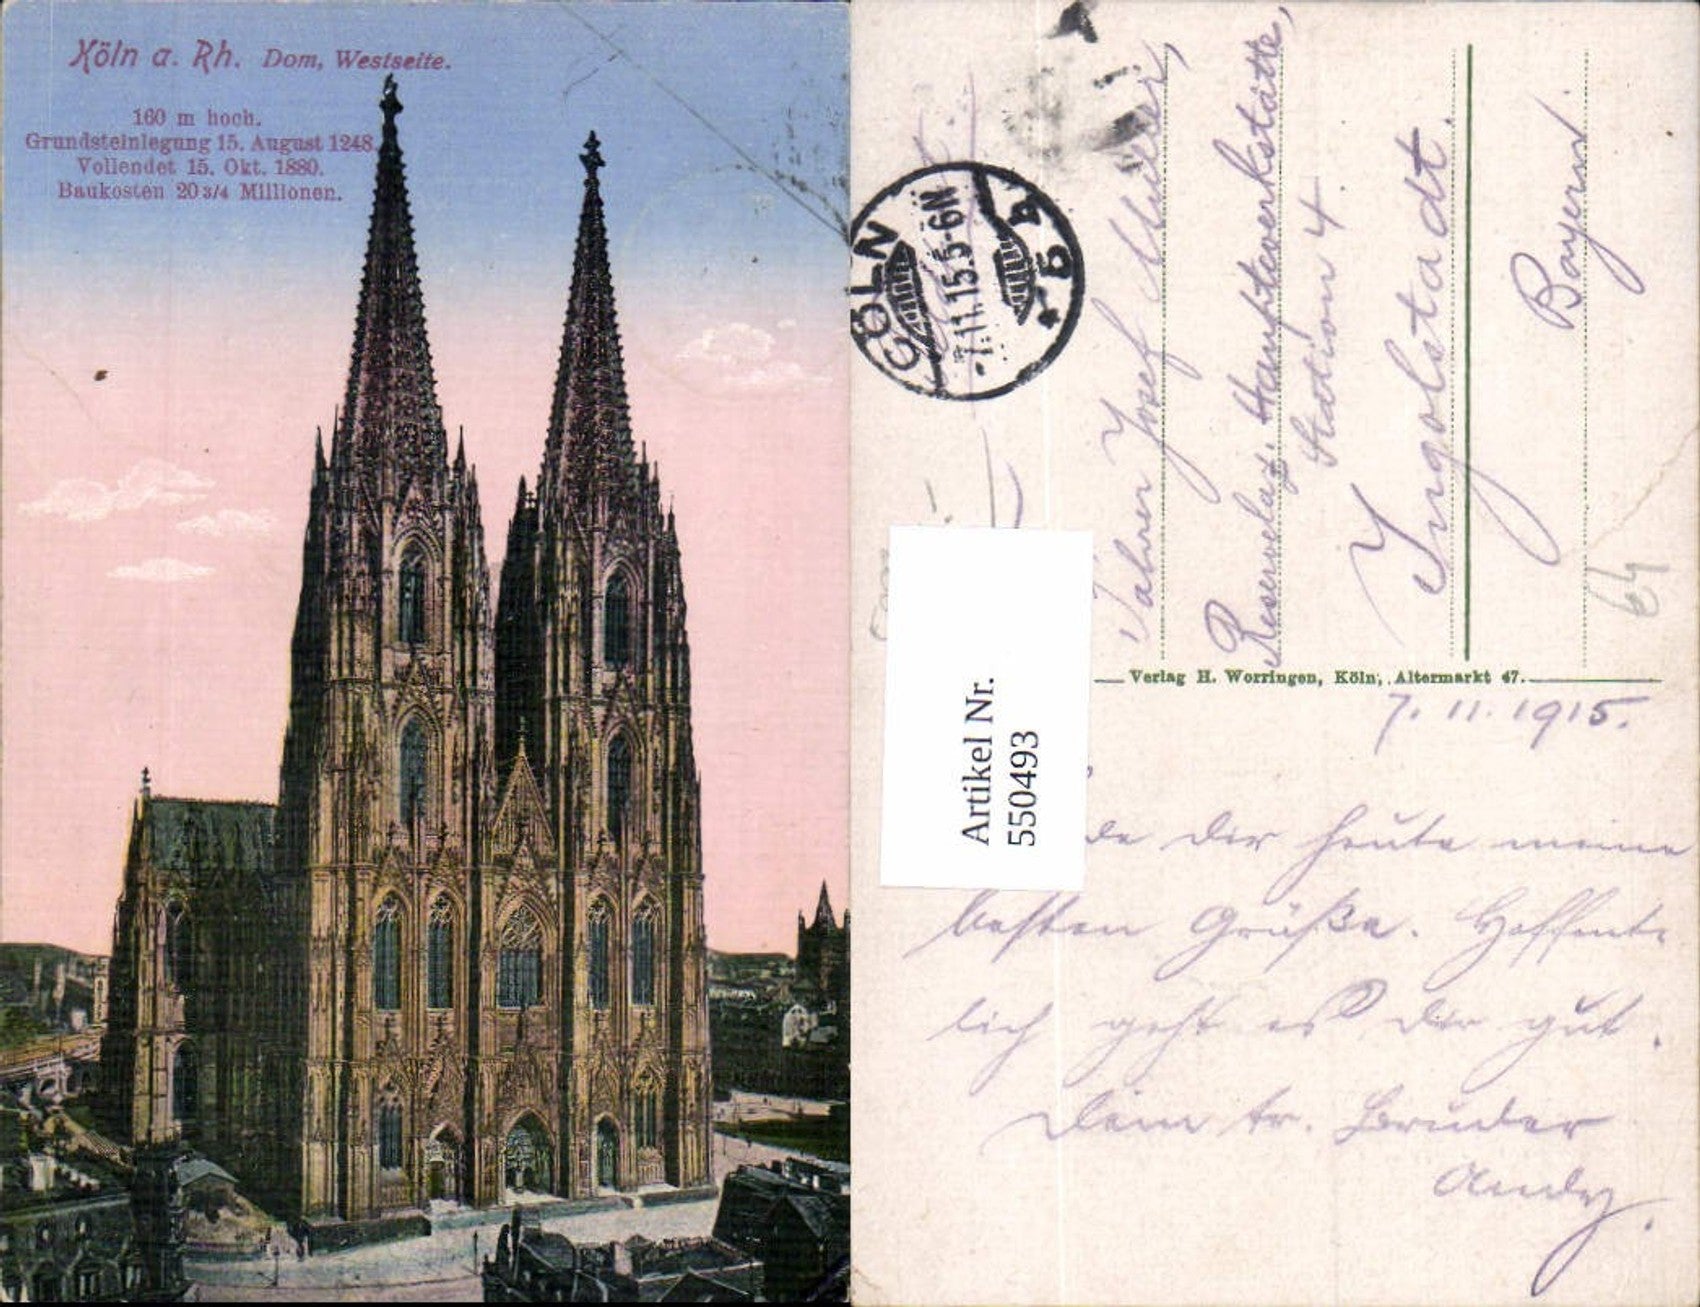 Köln a. Rh. Dom, Westseite.
160 m hoch.
Grundsteinlegung 15. August 1248.
Vollendet 15. Okt. 1880.
Baukosten 20 3/4 Millionen.
CÖLN
-7.11.15.5-6N
* 5 b
Josef
Reservelaz. Hauptwerkstätte,
Station 4.
Ingolstadt.
Bayern.
Verlag H. Worringen, Köln, Altermarkt 47.
Artikel Nr.
550493
7. 11. 1915.
de Dir heute meine
besten Grüße. Hoffent-
lich geht es Dir gut.
Dein tr. Bruder
Andy.